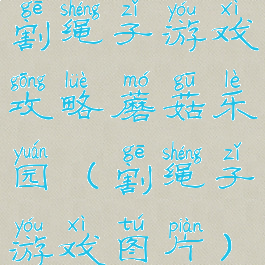 gē shéng zǐ yóu xì
割绳子游戏
gōng lüè mó gū lè
攻略蘑菇乐
yuán gē shéng zǐ
园（割绳子
yóu xì tú piàn
游戏图片）